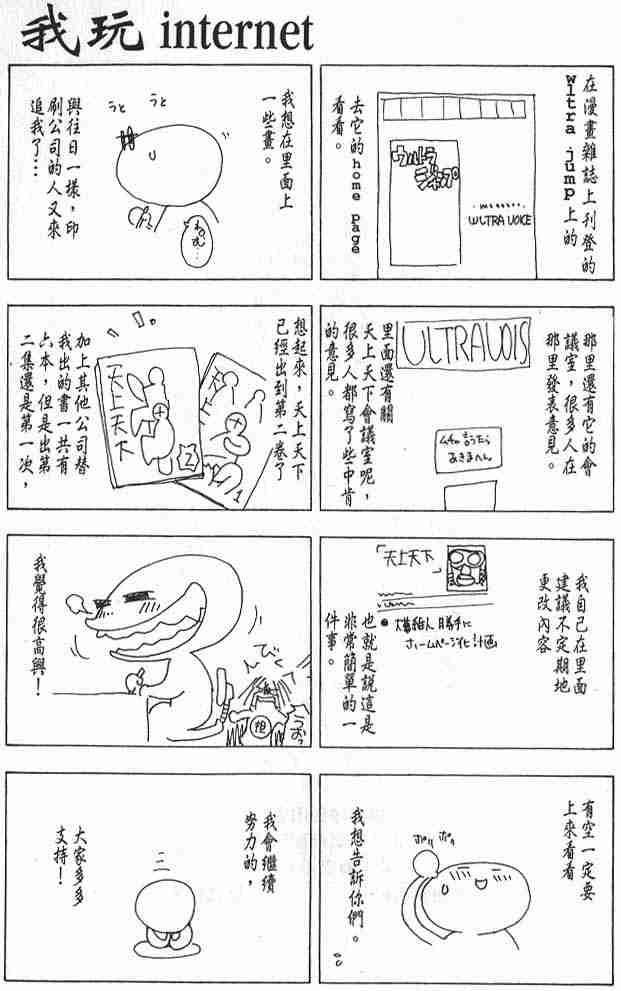 我玩 internet
在漫畫雜誌上刊登的
wltra jump上的
去它的home page
看看。
ウルトラ
ジャンプ
ULTRA VOICE
那里還有它的會
議室，很多人在
那里發表意見。
ULTRAVOIS
里面還有關
天上天下會議室呢，
很多人都寫了些中肯
的意見。
我自己在里面
建議不定期地
更改內容
「天上天下」
ホームページ化計画
也就是說這是
非常簡單的一
件事。
有空一定要
上來看看
ポリ ポリ
我想告訴你們。
我想在里面上
一些畫。
うと うと
與往日一樣，印
刷公司的人又來
追我了…
想起來，天上天下
已經出到第二卷了
天上天下
2
1
加上其他公司替
我出的書一共有
六本，但是出第
二集還是第一次，
我覺得很高興！
んびく
担
うおっ
我會繼續
努力的，
大家多多
支持！